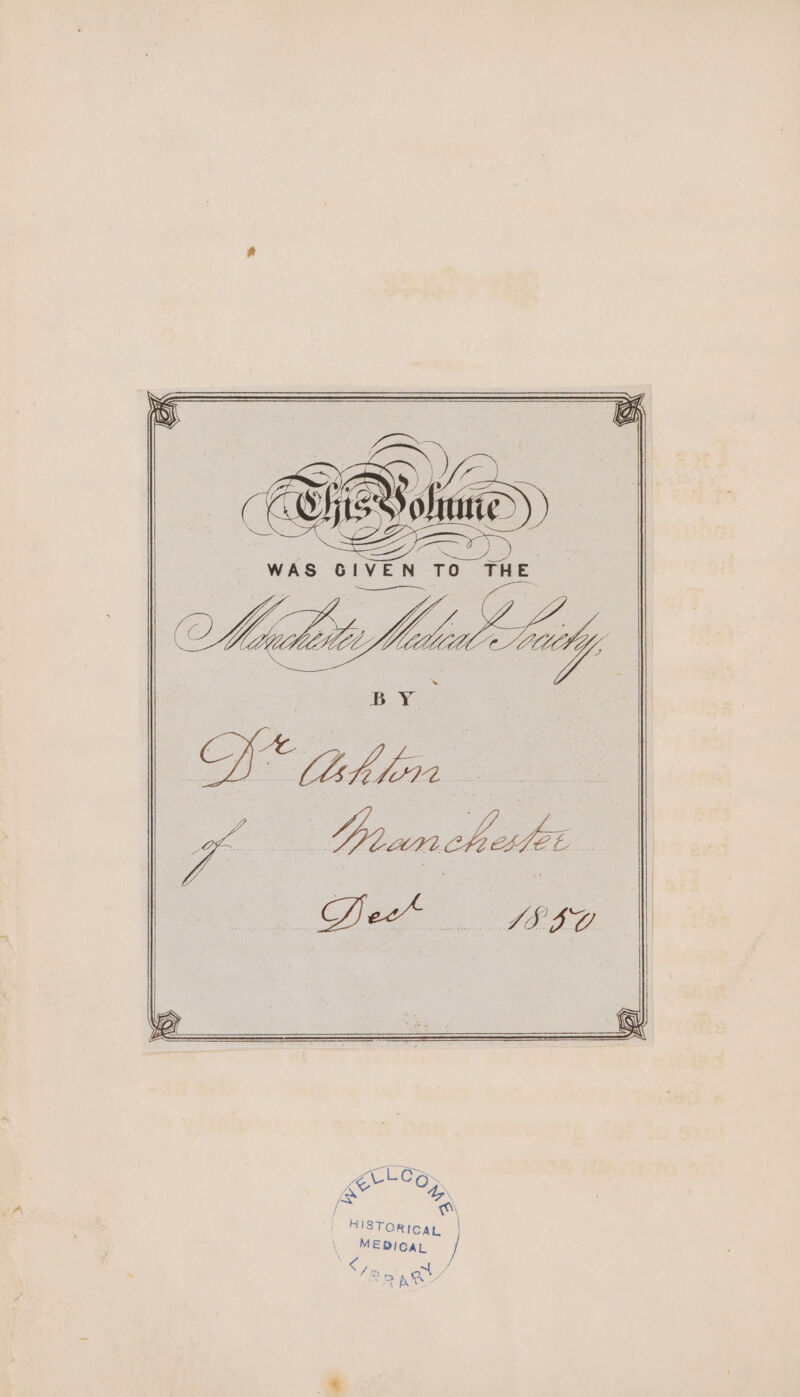 This Volume
WAS GIVEN TO THE
Manchester Medical Society,
BY
Dr Ashton
of Manchester
Decr 1850
WELLCOME
HISTORICAL
MEDICAL
LIBRARY